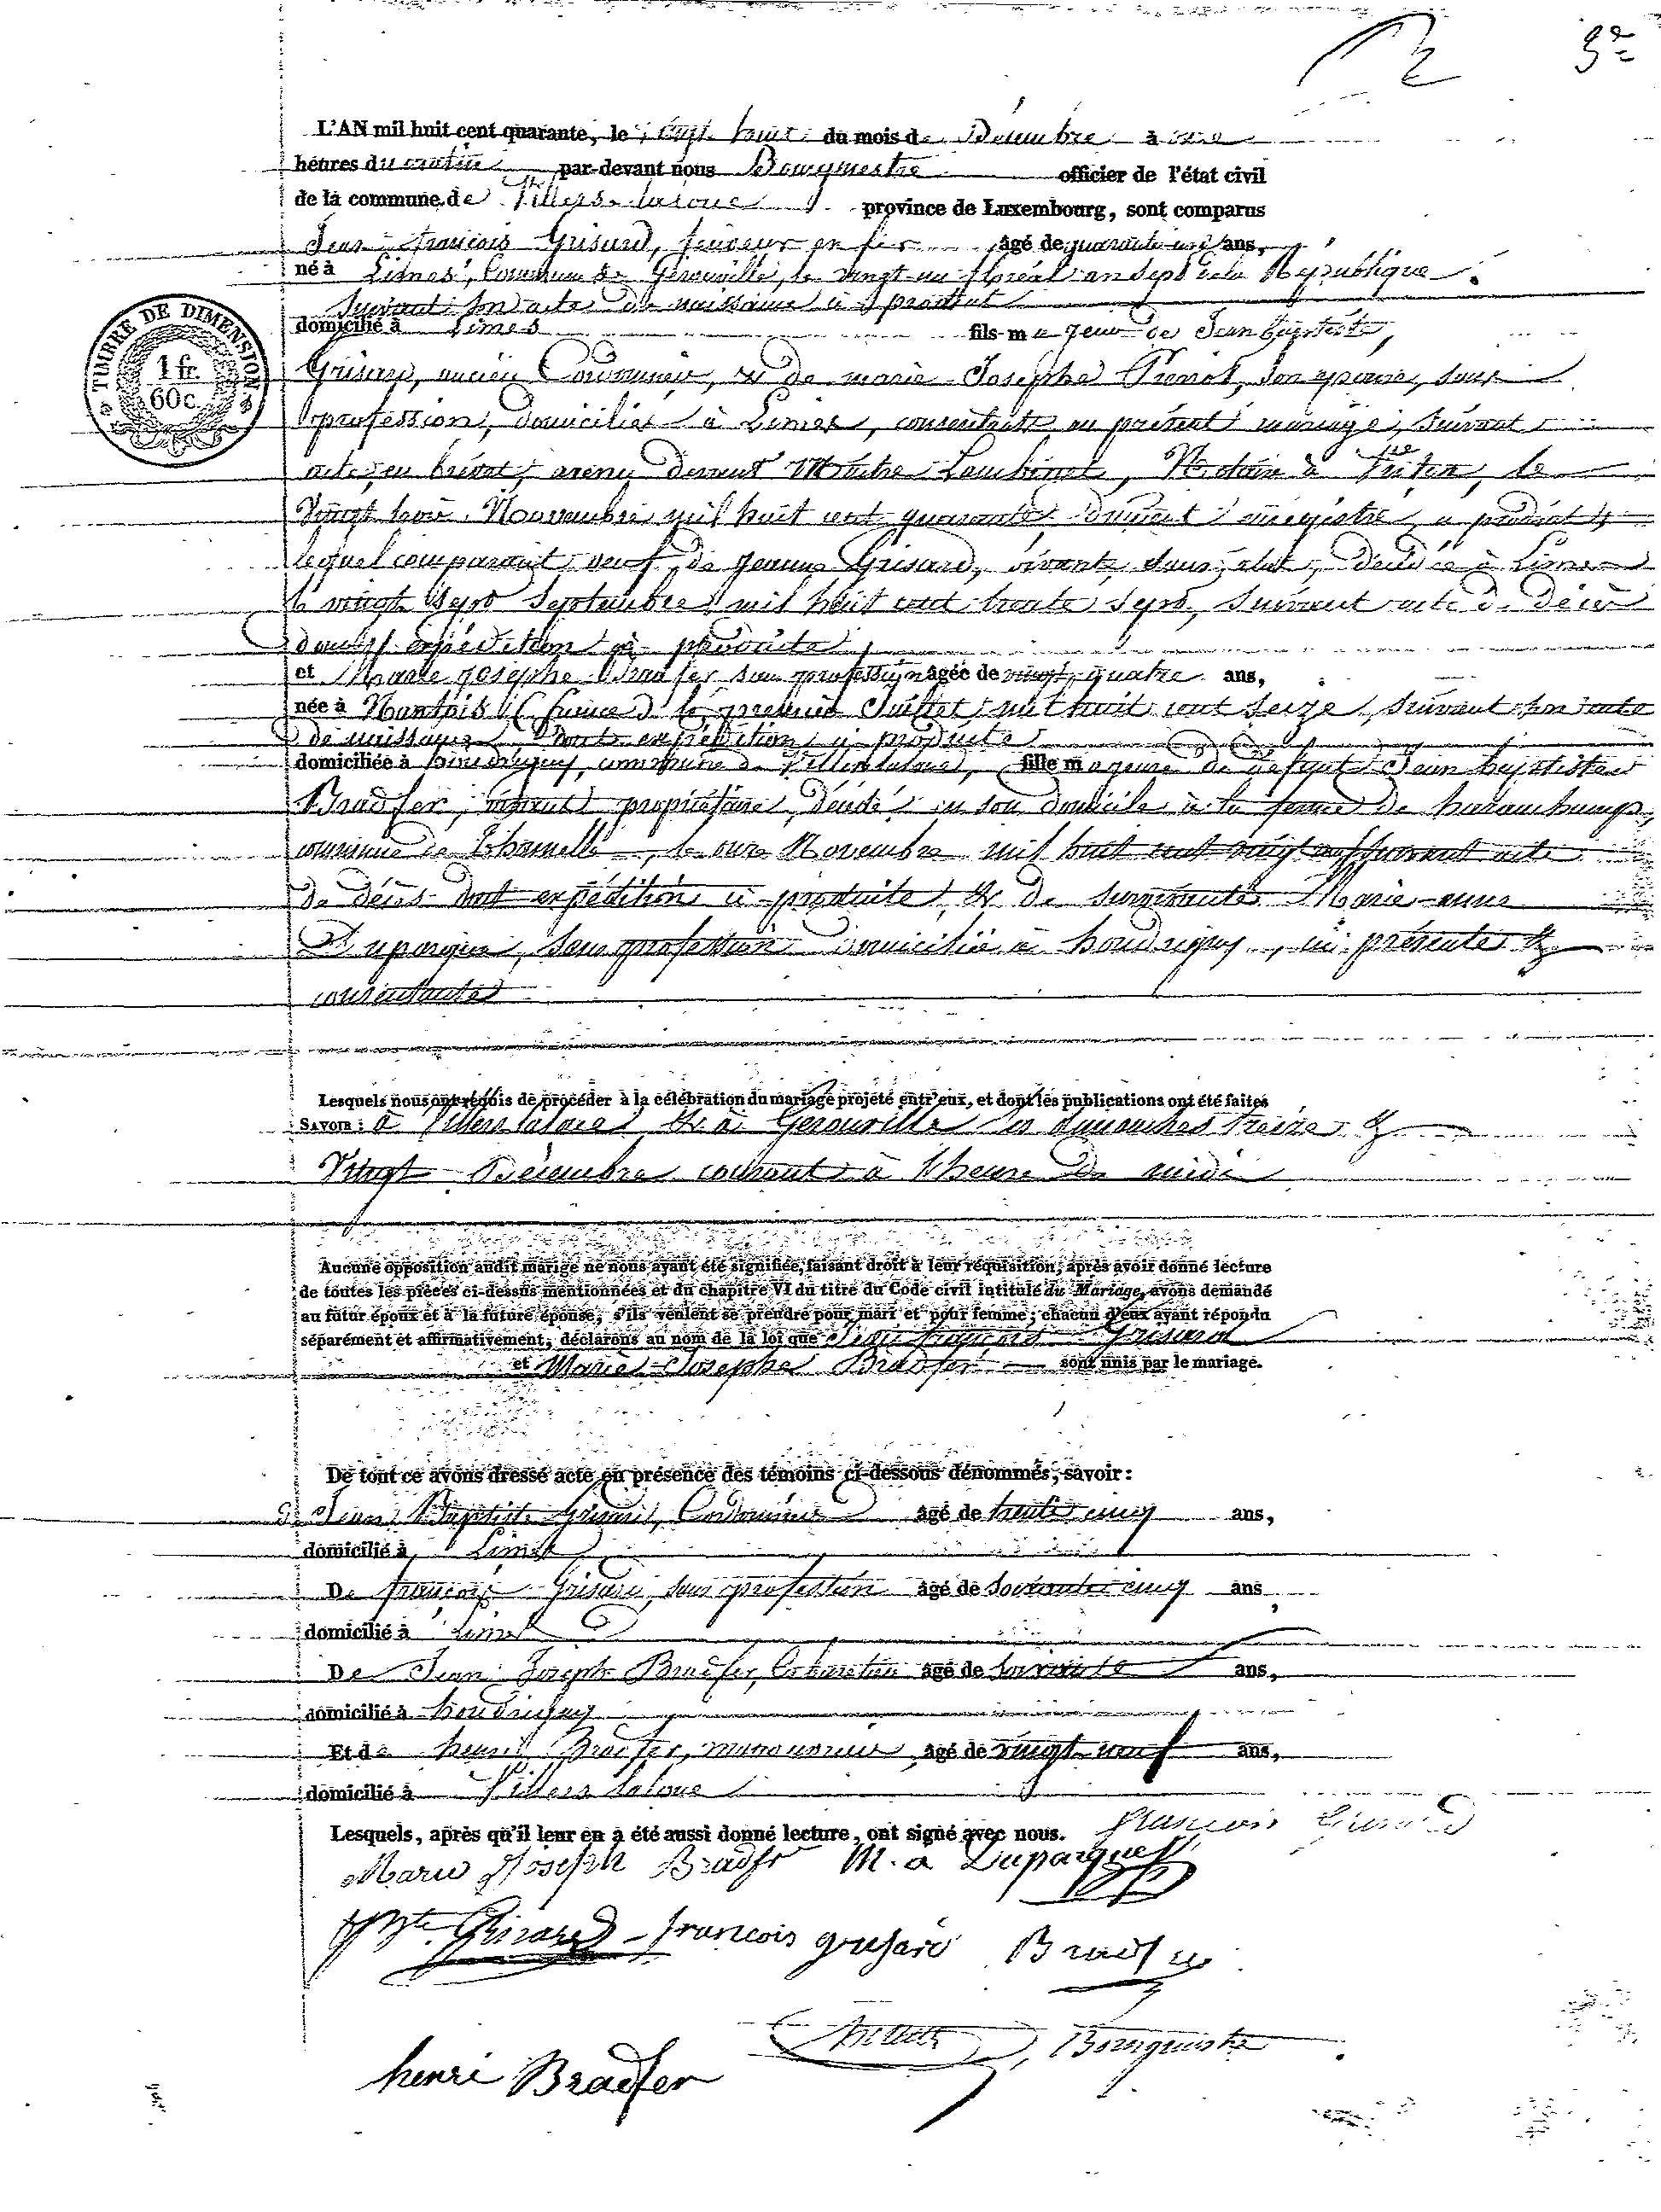 2
L'AN mil huit cent quarante, le vingt huit du mois de Décembre à onze
heures du matin par-devant nous Bourgmestre officier de l'état civil
de la commune de Villers-laloue province de Luxembourg, sont comparus
Jean françois Grisard, âgé de quarante un ans,
né à Limes, Commune de Gerouville, le vingt un floréal an sept de la République
suivant son acte de naissance ci produit
domicilié à Limes fils majeur de Jean baptiste
Grisard, ancien Cordonnier, & de marie Josephe Pierrot, son épouse, sans
profession, domiciliés à Limes, consentants au présent mariage, suivant
acte en brévet, avenu devant Maître Lambinet, Notaire à le
Vingt trois Novembre mil huit cent quarante dument enrégistré, ci produit &
lequel comparant veuf de Jeanne Grisard, vivante sans état, décédée à Limes
le vingt sept Septembre mil huit cent trente sept, suivant acte de décès
dont expédition ci produite
et Marie josephe Bradfer sans profession âgée de vingt quatre ans,
née à Nantois (france) le premier Juillet mil huit cent seize, suivant son acte
de naissance dont expédition ci produite
domiciliée à houdrigny, commune de Villers laloue, fille majeure de défunt Jean baptiste
Bradfer, vivant propriétaire, décédé en son domicile à la ferme de
commune de Thonnelle, le onze Novembre mil huit cent vingt suivant acte
de décès dont expédition ci produite, & de survivante Marie-anne
Duparque, sans profession domiciliée à houdrigny, ici présente &
consentante
Lesquels nous ont requis de procéder à la célébration du mariage projeté entr'eux, et dont les publications ont été faites
SAVOIR : à Villers laloue & à Gerouville les dimanches treize &
Vingt Décembre courant à l'heure de midi
Aucune opposition audit marige ne nous ayant été signifiée, faisant droit à leur réquisition, après avoir donné lecture
de toutes les pièces ci-dessus mentionnées et du chapitre VI du titre du Code civil intitulé du Mariage, avons demandé
au futur époux et à la future épouse, s'ils veulent se prendre pour mari et pour femme; chacun d'eux ayant répondu
séparément et affirmativement, déclarons au nom de la loi que Jean françois Grisard
et Marie Josephe Bradfer sont unis par le mariage.
TIMBRE DE DIMENSION
1 fr.
60 c.
De tout ce avons dressé acte en présence des témoins ci-dessous dénommés, savoir :
De Jean Baptiste Grisard, Cordonnier âgé de trente cinq ans,
domicilié à Limes
De françois Grisard, sans profession âgé de soixante cinq ans,
domicilié à Limes
De Jean Joseph Bradfer, Cabaretier âgé de soixante ans,
domicilié à houdrigny
Et de henri Bradfer, manouvrier âgé de vingt neuf ans,
domicilié à Villers laloue
Lesquels, après qu'il leur en a été aussi donné lecture, ont signé avec nous. françois Grisard
Marie Joseph Bradfr M. a Duparque
Bte. Grisard françois grisard Bradfer
Bourgmestre
henri Bradfer